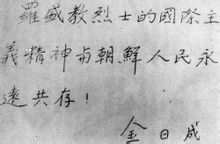 羅盛教烈士的國際主
義精神与朝鮮人民永
遠共存!
金日成